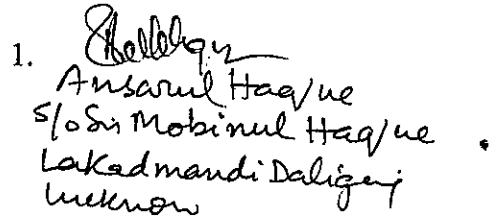 1.
Ansarul Haque
S/o Sri Mobinul Haque
Lakadmandi Daligunj
Lucknow